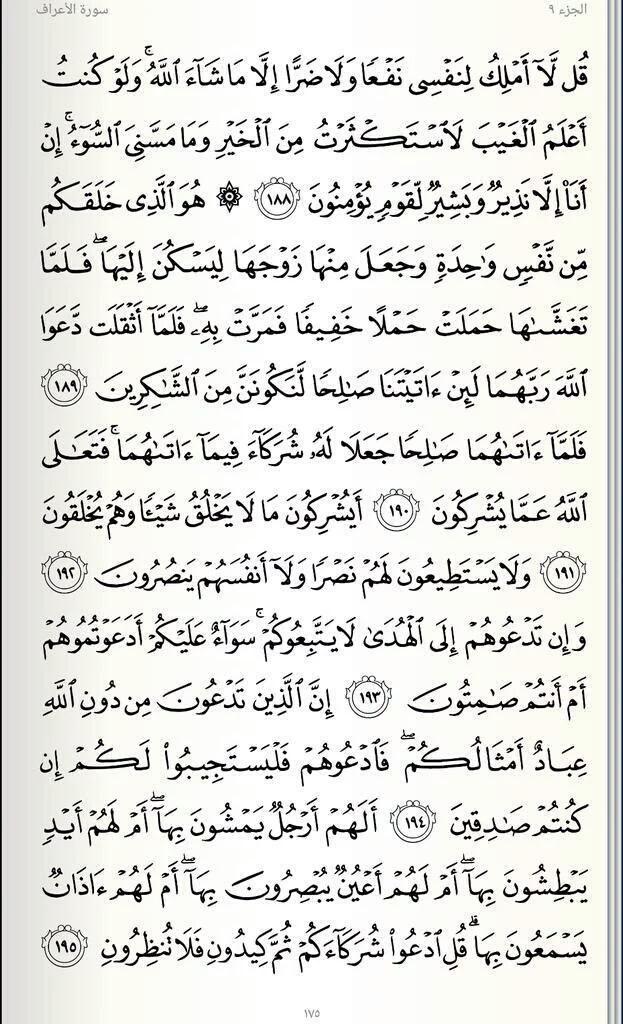 سورة الأعراف الجزء ٩
قُل لَّآ أَمْلِكُ لِنَفْسِى نَفْعًا وَلَا ضَرًّا إِلَّا مَا شَآءَ ٱللَّهُ ۚ وَلَوْ كُنتُ
أَعْلَمُ ٱلْغَيْبَ لَٱسْتَكْثَرْتُ مِنَ ٱلْخَيْرِ وَمَا مَسَّنِىَ ٱلسُّوٓءُ ۚ إِنْ
أَنَا۠ إِلَّا نَذِيرٌ وَبَشِيرٌ لِّقَوْمٍ يُؤْمِنُونَ ١٨٨ ۞ هُوَ ٱلَّذِى خَلَقَكُم
مِّن نَّفْسٍ وَٰحِدَةٍ وَجَعَلَ مِنْهَا زَوْجَهَا لِيَسْكُنَ إِلَيْهَا ۖ فَلَمَّا
تَغَشَّىٰهَا حَمَلَتْ حَمْلًا خَفِيفًا فَمَرَّتْ بِهِۦ ۖ فَلَمَّآ أَثْقَلَت دَّعَوَا
ٱللَّهَ رَبَّهُمَا لَئِنْ ءَاتَيْتَنَا صَٰلِحًا لَّنَكُونَنَّ مِنَ ٱلشَّٰكِرِينَ ١٨٩
فَلَمَّآ ءَاتَىٰهُمَا صَٰلِحًا جَعَلَا لَهُۥ شُرَكَآءَ فِيمَآ ءَاتَىٰهُمَا ۚ فَتَعَٰلَى
ٱللَّهُ عَمَّا يُشْرِكُونَ ١٩٠ أَيُشْرِكُونَ مَا لَا يَخْلُقُ شَيْـًٔا وَهُمْ يُخْلَقُونَ
١٩١ وَلَا يَسْتَطِيعُونَ لَهُمْ نَصْرًا وَلَآ أَنفُسَهُمْ يَنصُرُونَ ١٩٢
وَإِن تَدْعُوهُمْ إِلَى ٱلْهُدَىٰ لَا يَتَّبِعُوكُمْ ۚ سَوَآءٌ عَلَيْكُمْ أَدَعَوْتُمُوهُمْ
أَمْ أَنتُمْ صَٰمِتُونَ ١٩٣ إِنَّ ٱلَّذِينَ تَدْعُونَ مِن دُونِ ٱللَّهِ
عِبَادٌ أَمْثَالُكُمْ ۖ فَٱدْعُوهُمْ فَلْيَسْتَجِيبُوا۟ لَكُمْ إِن
كُنتُمْ صَٰدِقِينَ ١٩٤ أَلَهُمْ أَرْجُلٌ يَمْشُونَ بِهَآ ۖ أَمْ لَهُمْ أَيْدٍ
يَبْطِشُونَ بِهَآ ۖ أَمْ لَهُمْ أَعْيُنٌ يُبْصِرُونَ بِهَآ ۖ أَمْ لَهُمْ ءَاذَانٌ
يَسْمَعُونَ بِهَا ۗ قُلِ ٱدْعُوا۟ شُرَكَآءَكُمْ ثُمَّ كِيدُونِ فَلَا تُنظِرُونِ ١٩٥
١٧٥